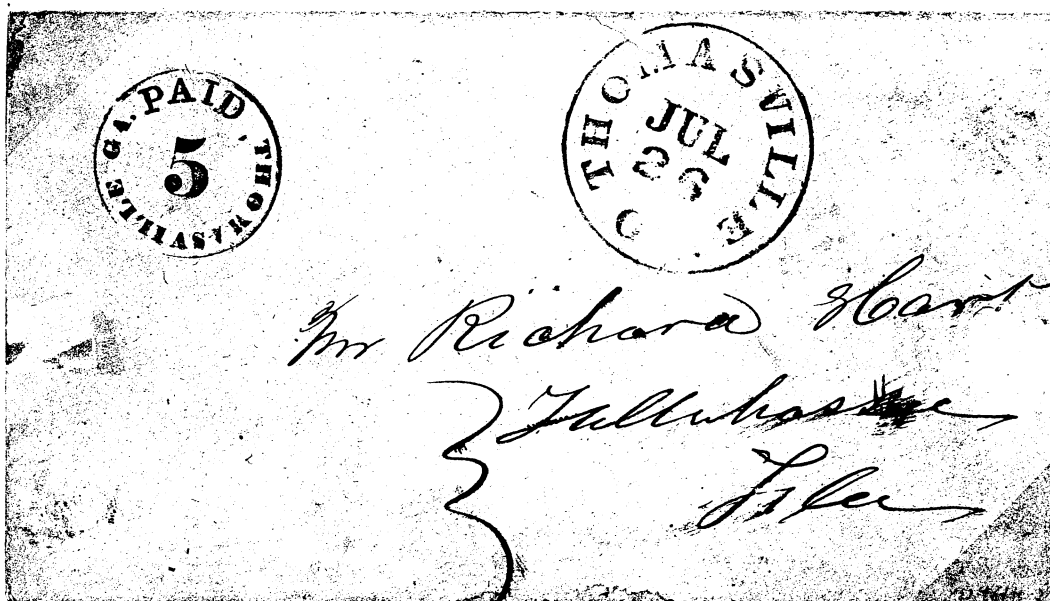 PAID, THOMASVILLE GA.
5
THOMASVILLE
JUL
26
Mr Richard Hart
Tallahassee
Fla